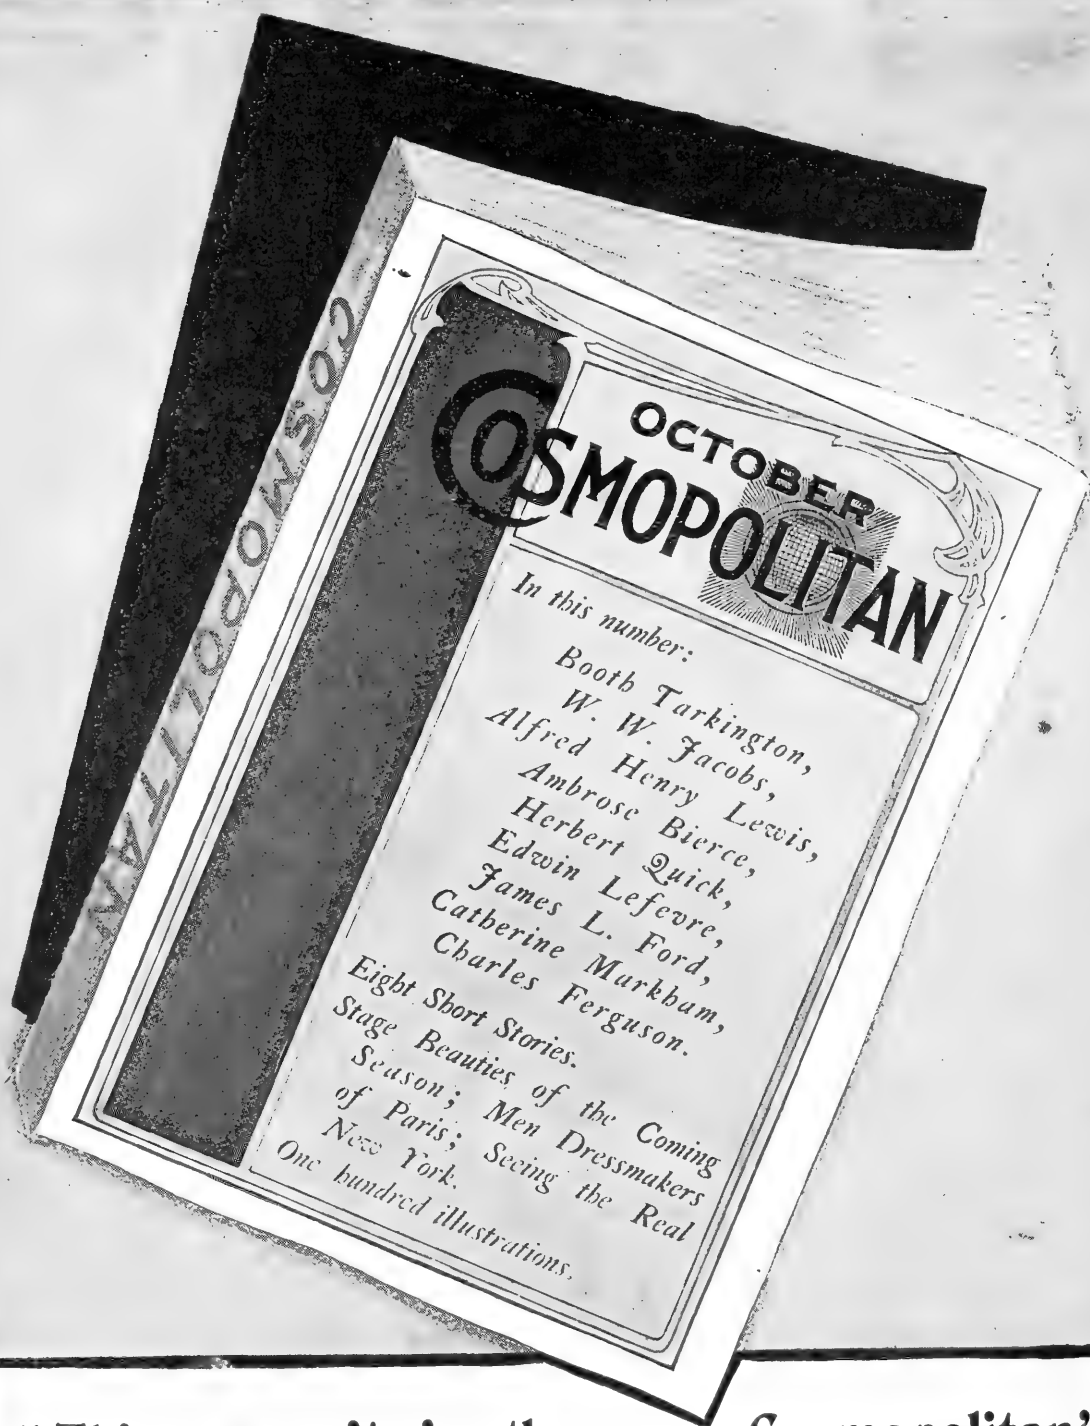 COSMOPOLITAN
OCTOBER
COSMOPOLITAN
In this number:
Booth Tarkington,
W. W. Jacobs,
Alfred Henry Lewis,
Ambrose Bierce,
Herbert Quick,
Edwin Lefevre,
James L. Ford,
Catherine Markham,
Charles Ferguson.
Eight Short Stories.
Stage Beauties of the Coming
Season; Men Dressmakers
of Paris; Seeing the Real
New York.
One hundred illustrations.